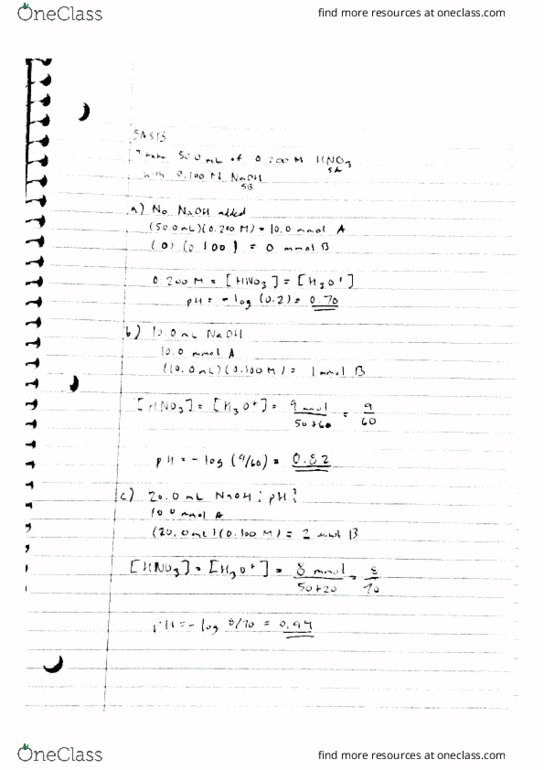 OneClass
find more resources at oneclass.com
SASB
50.0 mL of 0.200 M HNO3
SA
with 0.100 M NaOH
SB
a) No NaOH added
(50.0 mL)(0.200 M) = 10.0 mmol A
(0)(0.100) = 0 mmol B
0.200 M = [HNO3] = [H3O+]
pH = - log (0.2) = 0.70
b) 10.0 mL NaOH
10.0 mmol A
(10.0 mL)(0.100 M) = 1 mmol B
[HNO3] = [H3O+] = 9 mmol / 50+60 = 9/60
pH = - log (9/60) = 0.82
c) 20.0 mL NaOH; pH?
10.0 mmol A
(20.0 mL)(0.100 M) = 2 mmol B
[HNO3] = [H3O+] = 8 mmol / 50+20 = 8/70
pH = - log 8/70 = 0.94
OneClass
find more resources at oneclass.com